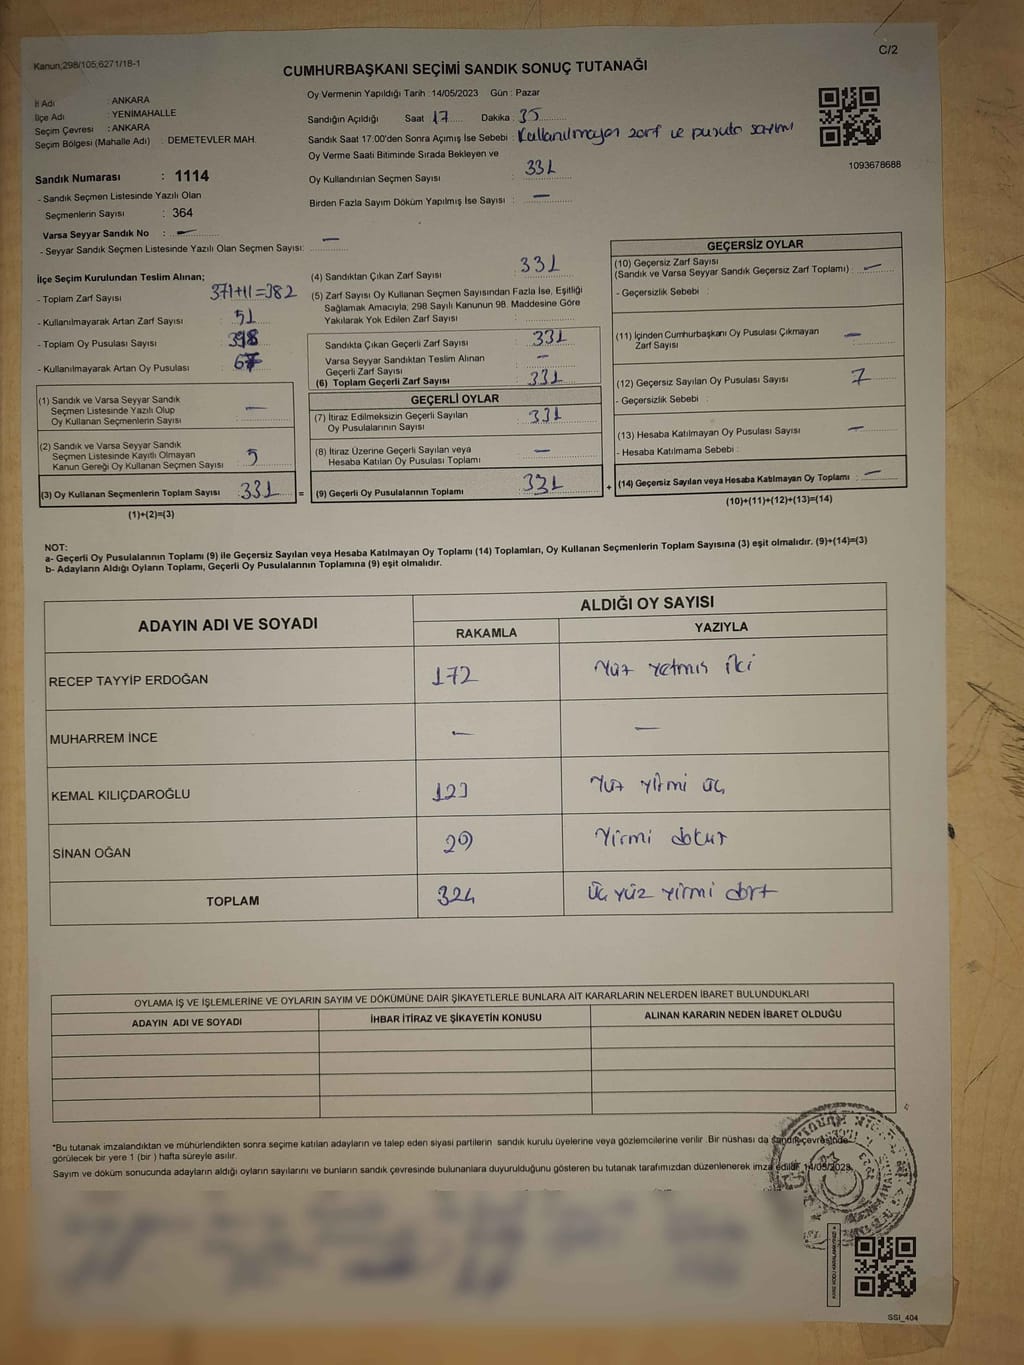 Kanun:298/105,6271/18-1
C/2
CUMHURBAŞKANI SEÇİMİ SANDIK SONUÇ TUTANAĞI
İl Adı : ANKARA
İlçe Adı : YENİMAHALLE
Seçim Çevresi : ANKARA
Seçim Bölgesi (Mahalle Adı) : DEMETEVLER MAH.
Sandık Numarası : 1114
- Sandık Seçmen Listesinde Yazılı Olan
Seçmenlerin Sayısı : 364
Varsa Seyyar Sandık No : —
- Seyyar Sandık Seçmen Listesinde Yazılı Olan Seçmen Sayısı: —
Oy Vermenin Yapıldığı Tarih : 14/05/2023 Gün : Pazar
Sandığın Açıldığı Saat 17 Dakika : 35
Sandık Saat 17:00'den Sonra Açımış İse Sebebi : Kullanılmayan zarf ve pusula sayımı
Oy Verme Saati Bitiminde Sırada Bekleyen ve
Oy Kullandırılan Seçmen Sayısı : 331
Birden Fazla Sayım Döküm Yapılmış İse Sayısı : —
1093678688
İlçe Seçim Kurulundan Teslim Alınan;
- Toplam Zarf Sayısı : 371+11=382
- Kullanılmayarak Artan Zarf Sayısı : 51
- Toplam Oy Pusulası Sayısı : 398
- Kullanılmayarak Artan Oy Pusulası : 67
(1) Sandık ve Varsa Seyyar Sandık
Seçmen Listesinde Yazılı Olup
Oy Kullanan Seçmenlerin Sayısı : —
(2) Sandık ve Varsa Seyyar Sandık
Seçmen Listesinde Kayıtlı Olmayan
Kanun Gereği Oy Kullanan Seçmen Sayısı : 5
(3) Oy Kullanan Seçmenlerin Toplam Sayısı : 331 =
(1)+(2)=(3)
(4) Sandıktan Çıkan Zarf Sayısı : 331
(5) Zarf Sayısı Oy Kullanan Seçmen Sayısından Fazla İse, Eşitliği
Sağlamak Amacıyla, 298 Sayılı Kanunun 98. Maddesine Göre
Yakılarak Yok Edilen Zarf Sayısı :
Sandıkta Çıkan Geçerli Zarf Sayısı : 331
Varsa Seyyar Sandıktan Teslim Alınan
Geçerli Zarf Sayısı : —
(6) Toplam Geçerli Zarf Sayısı : 331
GEÇERLİ OYLAR
(7) İtiraz Edilmeksizin Geçerli Sayılan
Oy Pusulalarının Sayısı : 331
(8) İtiraz Üzerine Geçerli Sayılan veya
Hesaba Katılan Oy Pusulası Toplamı : —
(9) Geçerli Oy Pusulalarının Toplamı : 331 +
GEÇERSİZ OYLAR
(10) Geçersiz Zarf Sayısı
(Sandık ve Varsa Seyyar Sandık Geçersiz Zarf Toplamı) : —
- Geçersizlik Sebebi :
(11) İçinden Cumhurbaşkanı Oy Pusulası Çıkmayan
Zarf Sayısı : —
(12) Geçersiz Sayılan Oy Pusulası Sayısı : 7
- Geçersizlik Sebebi :
(13) Hesaba Katılmayan Oy Pusulası Sayısı : —
- Hesaba Katılmama Sebebi :
(14) Geçersiz Sayılan veya Hesaba Katılmayan Oy Toplamı : —
(10)+(11)+(12)+(13)=(14)
NOT:
a- Geçerli Oy Pusulalarının Toplamı (9) ile Geçersiz Sayılan veya Hesaba Katılmayan Oy Toplamı (14) Toplamları, Oy Kullanan Seçmenlerin Toplam Sayısına (3) eşit olmalıdır. (9)+(14)=(3)
b- Adayların Aldığı Oyların Toplamı, Geçerli Oy Pusulalarının Toplamına (9) eşit olmalıdır.
ADAYIN ADI VE SOYADI
ALDIĞI OY SAYISI
RAKAMLA YAZIYLA
RECEP TAYYİP ERDOĞAN 172 Yüz yetmiş iki
MUHARREM İNCE — —
KEMAL KILIÇDAROĞLU 123 Yüz yirmi üç
SİNAN OĞAN 29 Yirmi dokuz
TOPLAM 324 Üç yüz yirmi dört
OYLAMA İŞ VE İŞLEMLERİNE VE OYLARIN SAYIM VE DÖKÜMÜNE DAİR ŞİKAYETLERLE BUNLARA AİT KARARLARIN NELERDEN İBARET BULUNDUKLARI
ADAYIN ADI VE SOYADI İHBAR İTİRAZ VE ŞİKAYETİN KONUSU ALINAN KARARIN NEDEN İBARET OLDUĞU
*Bu tutanak imzalandıktan ve mühürlendikten sonra seçime katılan adayların ve talep eden siyasi partilerin sandık kurulu üyelerine veya gözlemcilerine verilir. Bir nüshası da sandık çevresinde
görülecek bir yere 1 (bir) hafta süreyle asılır.
Sayım ve döküm sonucunda adayların aldığı oyların sayılarını ve bunların sandık çevresinde bulunanlara duyurulduğunu gösteren bu tutanak tarafımızdan düzenlenerek imza edildi. 14/05/2023
SSI_404